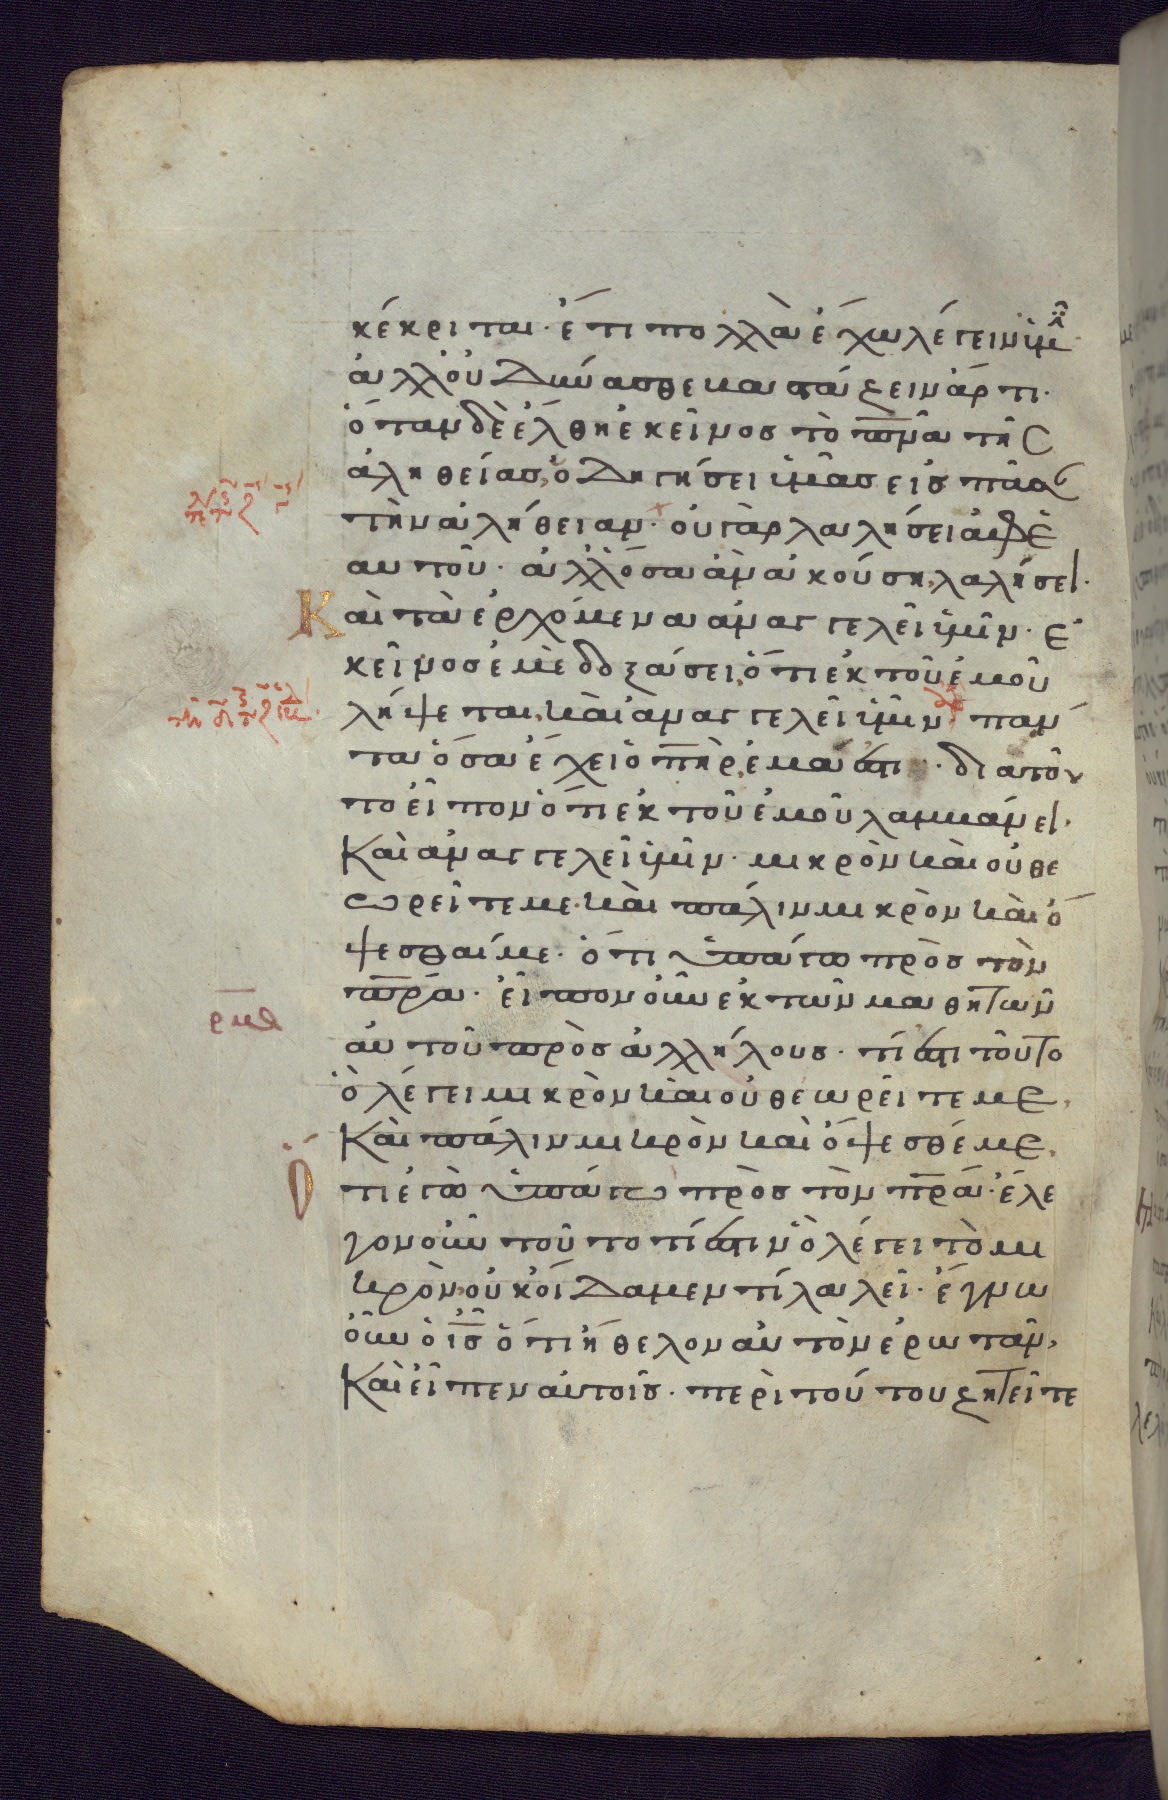 κέκριται· ἔτι πολλὰ ἔχω λέγειν ὑμῖν
ἀλλ' οὐ δύνασθε βαστάζειν ἄρτι·
ὅταν δὲ ἔλθη ἐκεῖνος τὸ πνᾶ τῆς
ἀληθείας, ὁδηγήσει ὑμᾶς εἰς πᾶσαν
τὴν ἀλήθειαν· οὐ γὰρ λαλήσει ἀφ' ἑ
αυτοῦ· ἀλλ' ὅσα ἂν ἀκούση, λαλήσει·
Καὶ τὰ ἐρχόμενα ἀναγγελεῖ ὑμῖν· ἐ
κεῖνος ἐμὲ δοξάσει, ὅτι ἐκ τοῦ ἐμοῦ
λήψεται, καὶ ἀναγγελεῖ ὑμῖν· πάν
τα ὅσα ἔχει ὁ πηρ, ἐμά ἐστι· διὰ τοῦ
το εἶπον ὅτι ἐκ τοῦ ἐμοῦ λαμβάνει·
Καὶ ἀναγγελεῖ ὑμῖν· μικρὸν καὶ οὐ θε
ωρεῖτε με· καὶ πάλιν μικρὸν καὶ ὄ
ψεσθαί με· ὅτι ὑπάγω πρὸς τὸν
πρᾱ· εἶπον οὖν ἐκ τῶν μαθητῶν
ρμθ
αὐτοῦ πρὸς ἀλλήλους· τί ἐστι τοῦτο
ὃ λέγει μικρὸν καὶ οὐ θεωρεῖτε με,
Καὶ πάλιν μικρὸν καὶ ὄψεσθέ με,
Ὅτι ἐγὼ ὑπάγω πρὸς τὸν πρᾱ· ἔλε
γον οὖν τοῦτο τί ἐστιν ὃ λέγει τὸ μι
κρὸν, οὐκ οἴδαμεν τί λαλεῖ· ἔγνω
οὖν ὁ ις ὅτι ἤθελον αὐτὸν ἐρωτᾶν,
Καὶ εἶπεν αὐτοῖς· περὶ τούτου ζητεῖτε